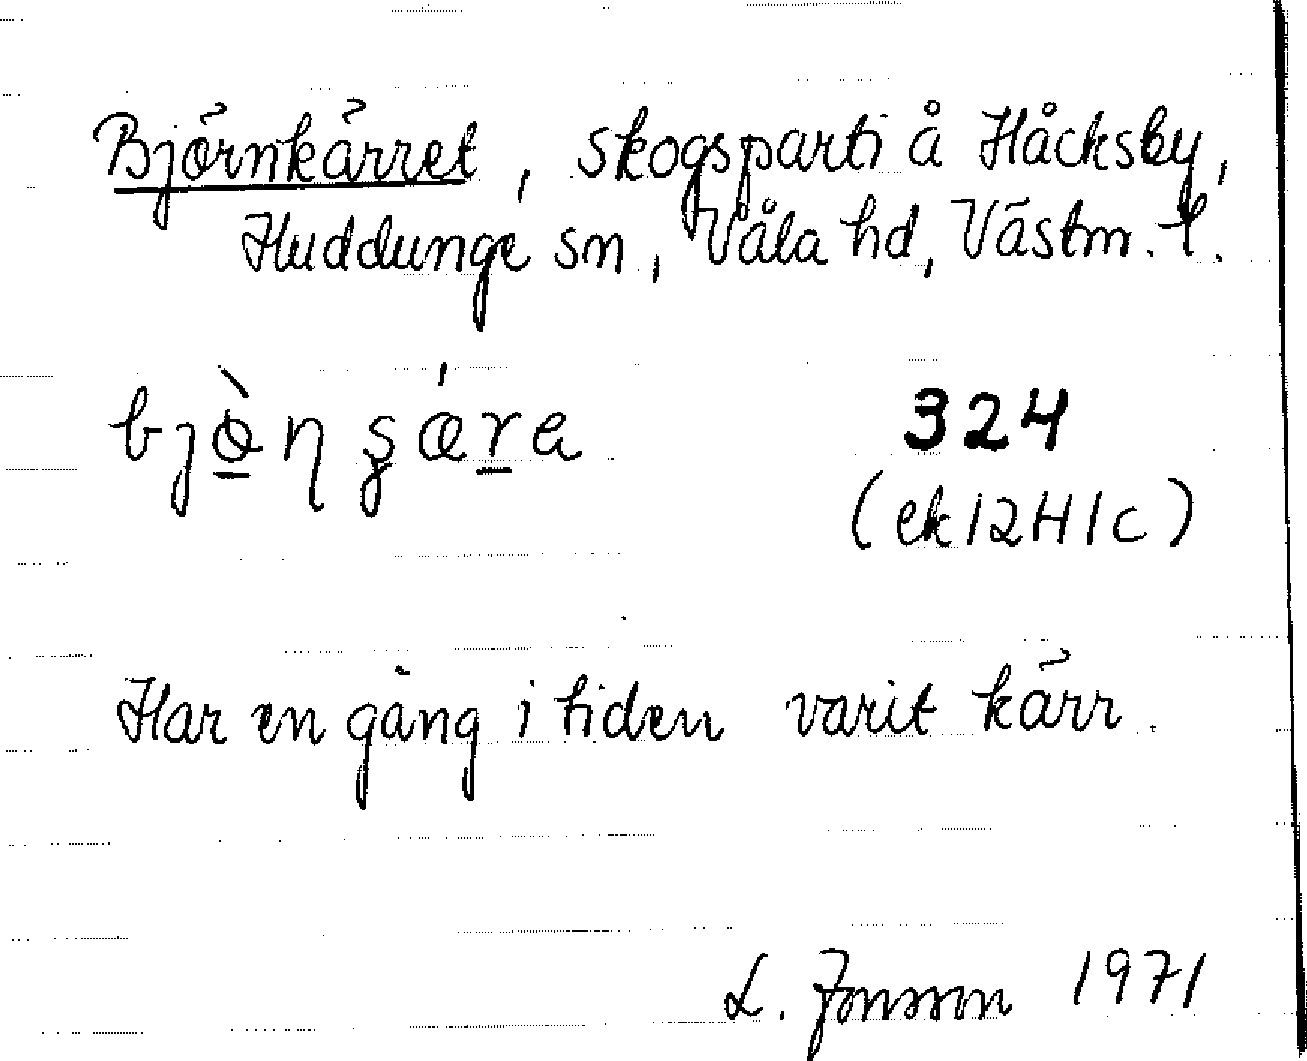 Björnkärret, skogsparti å Håcksby,
Huddunge sn, Våla hd, Västm. l.
324
(ek 12H1c)
Har en gång i tiden varit kärr.
L. Jonsson 1971